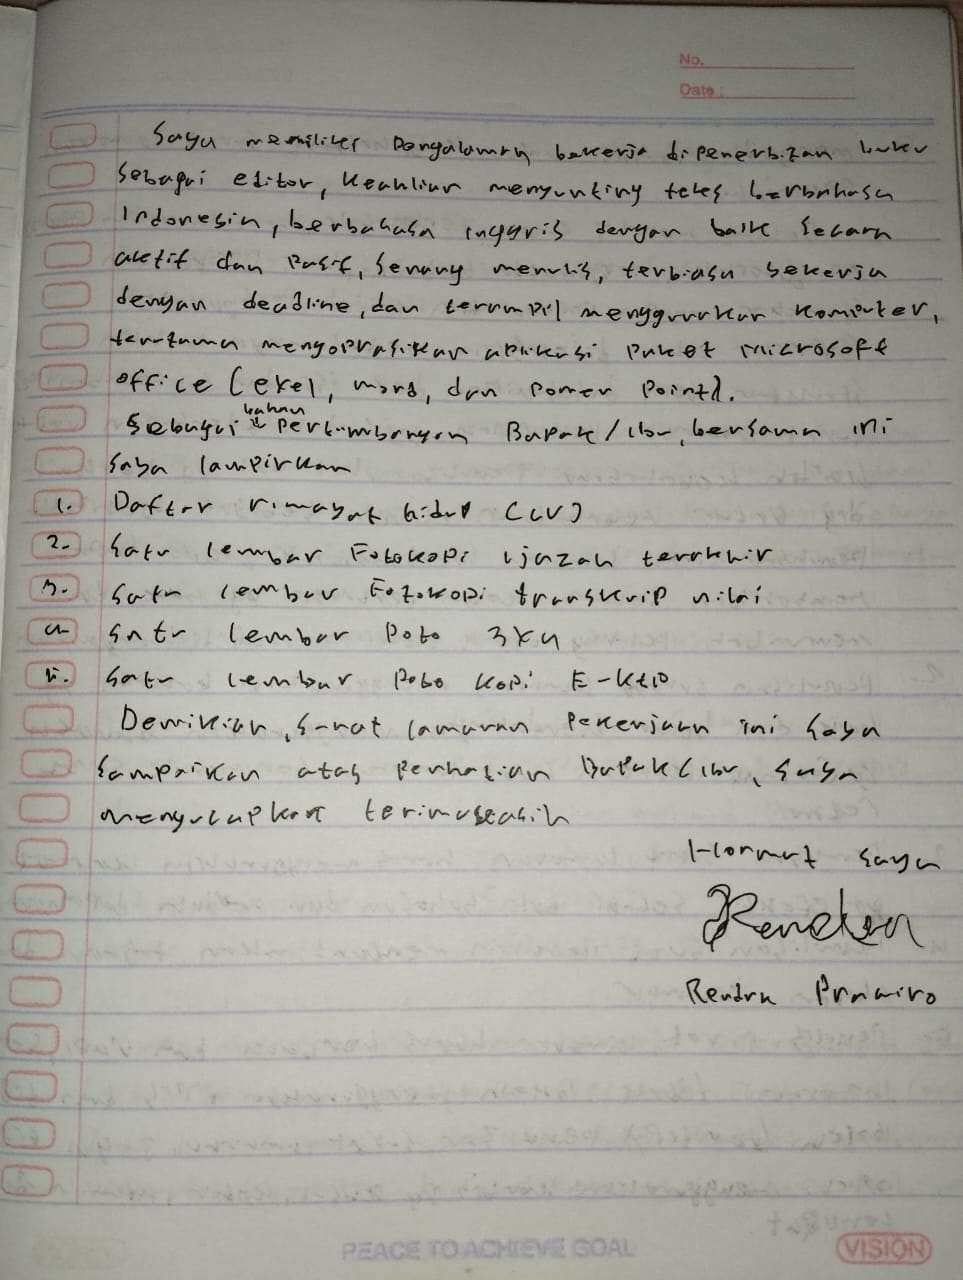 No.
Date :
Saya memiliki Pengalaman bekerja di penerbitan buku
Sebagai editor, Keahlian menyunting teks berbahasa
Indonesia, berbahasa inggris dengan baik Secara
aktif dan Pasif, Senang menulis, terbiasa bekerja
dengan deadline, dan terampil menggunakan Komputer,
terutama mengoprasikan aplikasi Paket microsoft
office (exel, word, dan Power Point).
bahan
Sebagai Pertimbangan Bapak / ibu, bersama ini
Saya lampirkan
1. Daftar riwayat hidup (CV)
2. Satu lembar Fotokopi ijazah terakhir
3. Satu lembar Fotokopi transkrip nilai
4 Satu lembar Poto 3x4
5. Satu lembar Poto Kopi E-Ktp
Demikian, Surat lamaran Pekerjaan ini Saya
Sampaikan atas Perhatian Bapak / ibu, Saya
mengucapkan terimakasih
Hormat Saya
Rendra
Rendra Prawiro
PEACE TO ACHIEVE GOAL
VISION